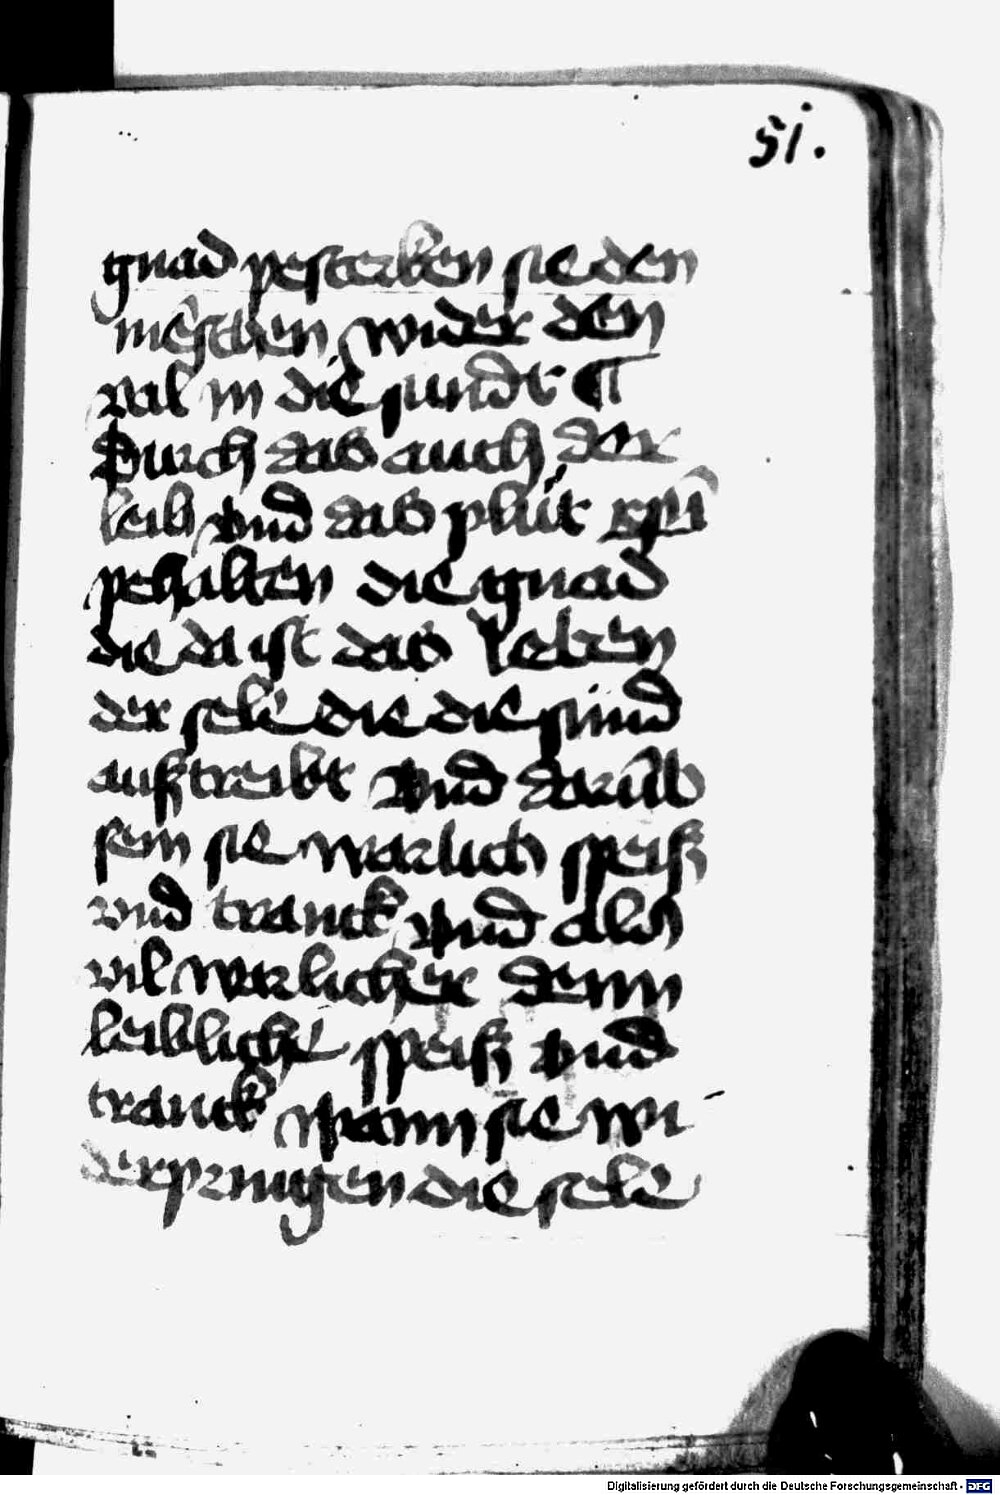 51.
gnad pesterken sie den
mēschen wider den
val in die sundt ¶
Durch das auch der
leib vnd das plůt xp̄i
pehalten die gnad
die da ist das leben
der sele die die sünd
auſztreibt vnd darūb
sein sie warlich speiſz
vnd tranck vnd als
vil warlicher denn
leibliche speiſz vnd
tranck wann sie wi
derpringen die sele
Digitalisierung gefördert durch die Deutsche Forschungsgemeinschaft - DFG